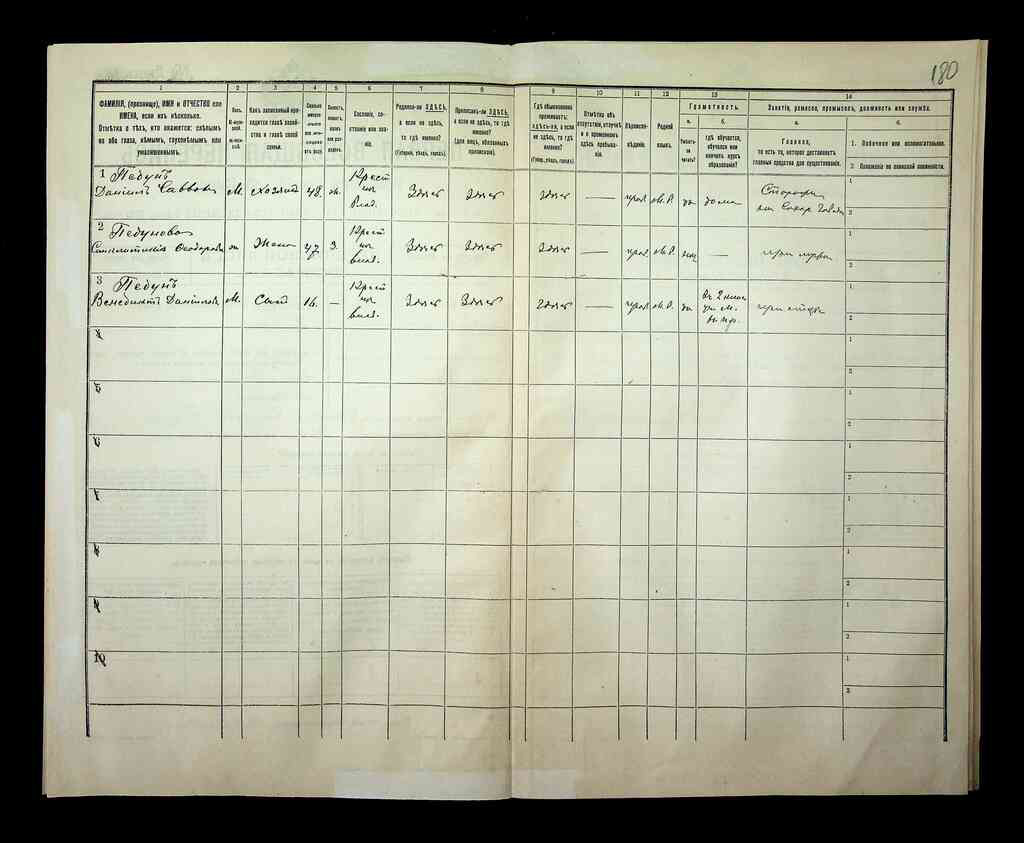 180
1 2 3 4 5 6 7 8 9 10 11 12 13 14
ФАМИЛІЯ, (прозвище), ИМЯ и ОТЧЕСТВО или
ИМЕНА, если ихъ нѣсколько.
Отмѣтка о тѣхъ, кто окажется: слѣпымъ
на оба глаза, нѣмымъ, глухонѣмымъ или
умалишеннымъ.
Полъ.
М-мужской.
Ж-женскій.
Какъ записанный приходится главѣ хозяйства и главѣ своей семьи.
Сколько минуло лѣтъ
Холостъ, женатъ, вдовъ или разведенъ.
Сословіе, состояніе или званіе.
Родился-ли ЗДѢСЬ,
а если не здѣсь,
то гдѣ именно?
(Губернія, уѣздъ, городъ).
Приписанъ-ли ЗДѢСЬ,
а если не здѣсь, то гдѣ
именно?
(для лицъ, обязанныхъ
припискою).
Гдѣ обыкновенно
проживаетъ:
ЗДѢСЬ-ЛИ, а если
не здѣсь, то гдѣ
именно?
(Губер., уѣздъ, городъ).
Отмѣтка объ
отсутствіи, отлучкѣ
и о временномъ
здѣсь пребываніи.
Вѣроисповѣданіе.
Родной языкъ.
Грамотность.
а.
Умѣетъ-ли читать?
б.
гдѣ обучается,
обучался или
кончилъ курсъ
образованія?
Занятіе, ремесло, промыселъ, должность или служба.
а.
Главное,
то есть то, которое доставляетъ
главныя средства для существованія.
б.
1. Побочное или вспомогательное.
2. Положеніе по воинской повинности.
1 Педунъ
Даніилъ Саввовъ М. хозяинъ 48. ж. Крест. Влад. Здѣсь Здѣсь Здѣсь — прав. м.р. да дома
1
2
2 Педунова
Ѳеодорова ж Жена 47 З. Крест. влад. Здѣсь Здѣсь Здѣсь — прав. м.р. нѣт — при мужѣ
1
2
3 Педунъ
Венедиктъ Даніиловъ М. Сынъ 16. — Крест. влад. Здѣсь Здѣсь Здѣсь — прав. м.р. да при отцѣ
1
2
4
1
2
5
1
2
6
1
2
7
1
2
8
1
2
9
1
2
10
1
2